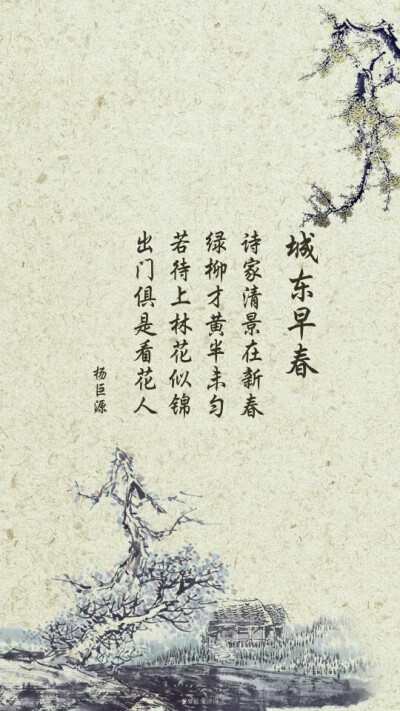 城东早春
诗家清景在新春
绿柳才黄半未匀
若待上林花似锦
出门俱是看花人
杨巨源